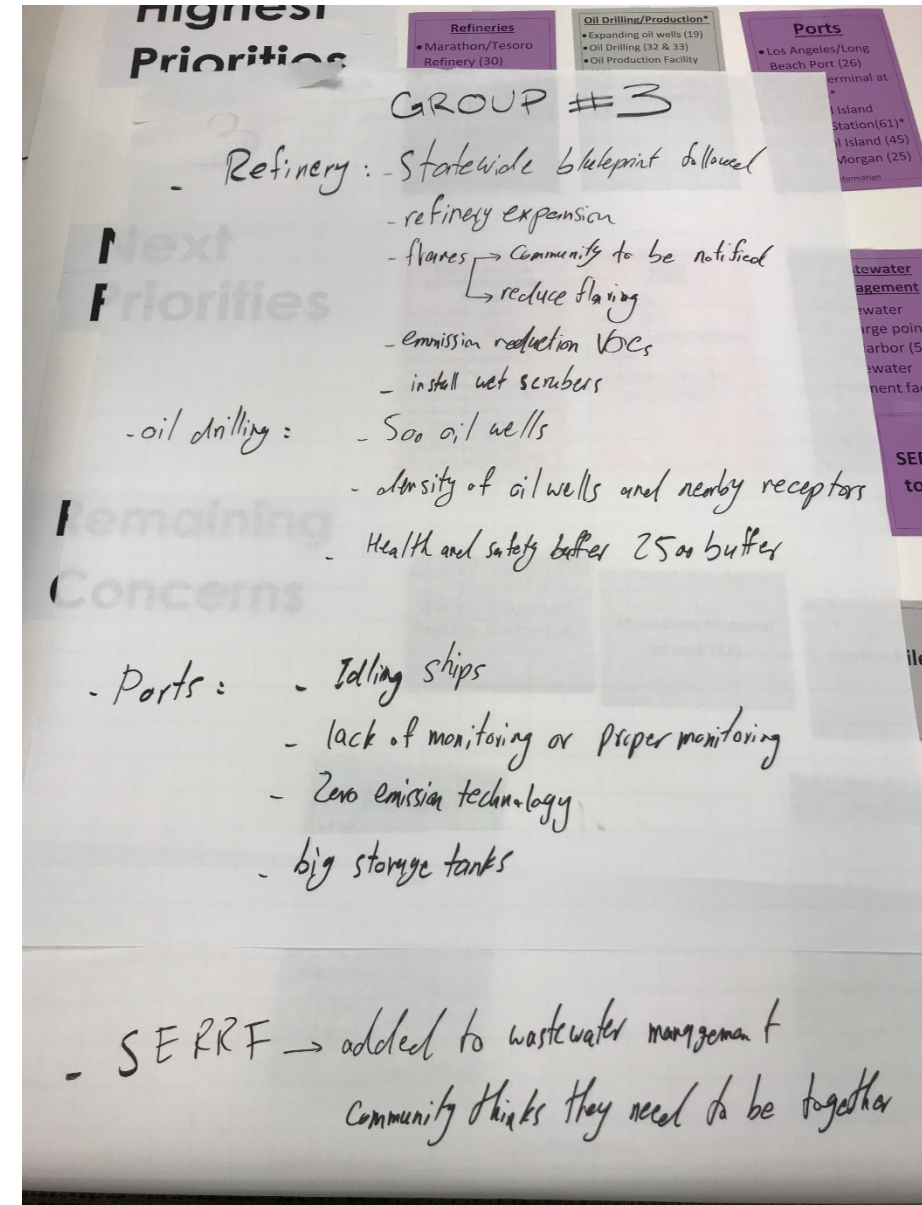 Highest
Priorities
Refineries
• Marathon/Tesoro
Refinery (30)
Oil Drilling/Production*
• Expanding oil wells (19)
• Oil Drilling (32 & 33)
• Oil Production Facility
Ports
• Los Angeles/Long
Beach Port (26)
erminal at
*
l Island
Station(61)*
l Island (45)
Morgan (25)
formation
GROUP #3
- Refinery : - Statewide blueprint followed
- refinery expansion
- flares → Community to be notified
→ reduce flaring
- emmission reduction VOCs
- install wet scrubers
- oil drilling : - 500 oil wells
- density of oil wells and nearby receptors
- Health and safety buffer 2500 buffer
- Ports : - Idling ships
- lack of monitoring or proper monitoring
- Zero emission technology
- big storage tanks
- SERRF → added to wastewater management
community thinks they need to be together
Next
Priorities
Remaining
Concerns
tewater
agement
ewater
arge poin
arbor (5
ewater
ment fa
SER
to
ile